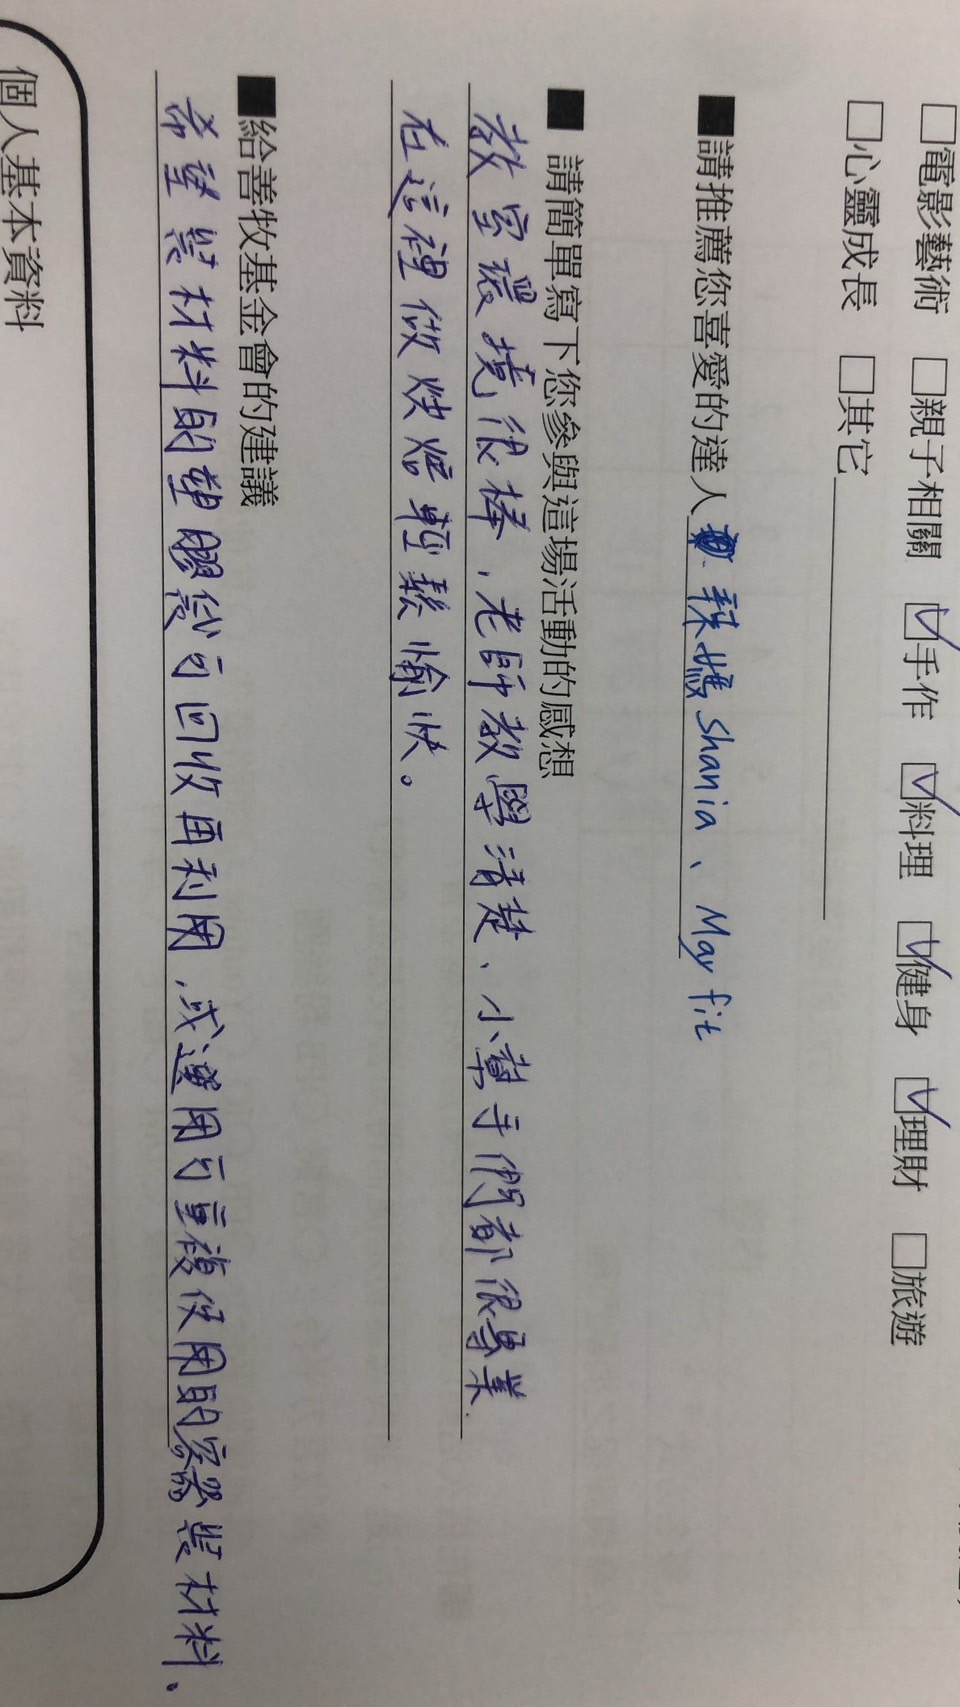 □電影藝術 □親子相關 ☑手作 ☑料理 ☑健身 ☑理財 □旅遊
□心靈成長 □其它
■請推薦您喜愛的達人 蔡媽Shania、May fit
■ 請簡單寫下您參與這場活動的感想
教室環境很棒,老師教學清楚、小幫手們都很專業.
在這裡做烘焙輕鬆愉快。
■給善牧基金會的建議
希望裝材料的塑膠袋可回收再利用,或選用可重複使用的容器裝材料、
個人基本資料